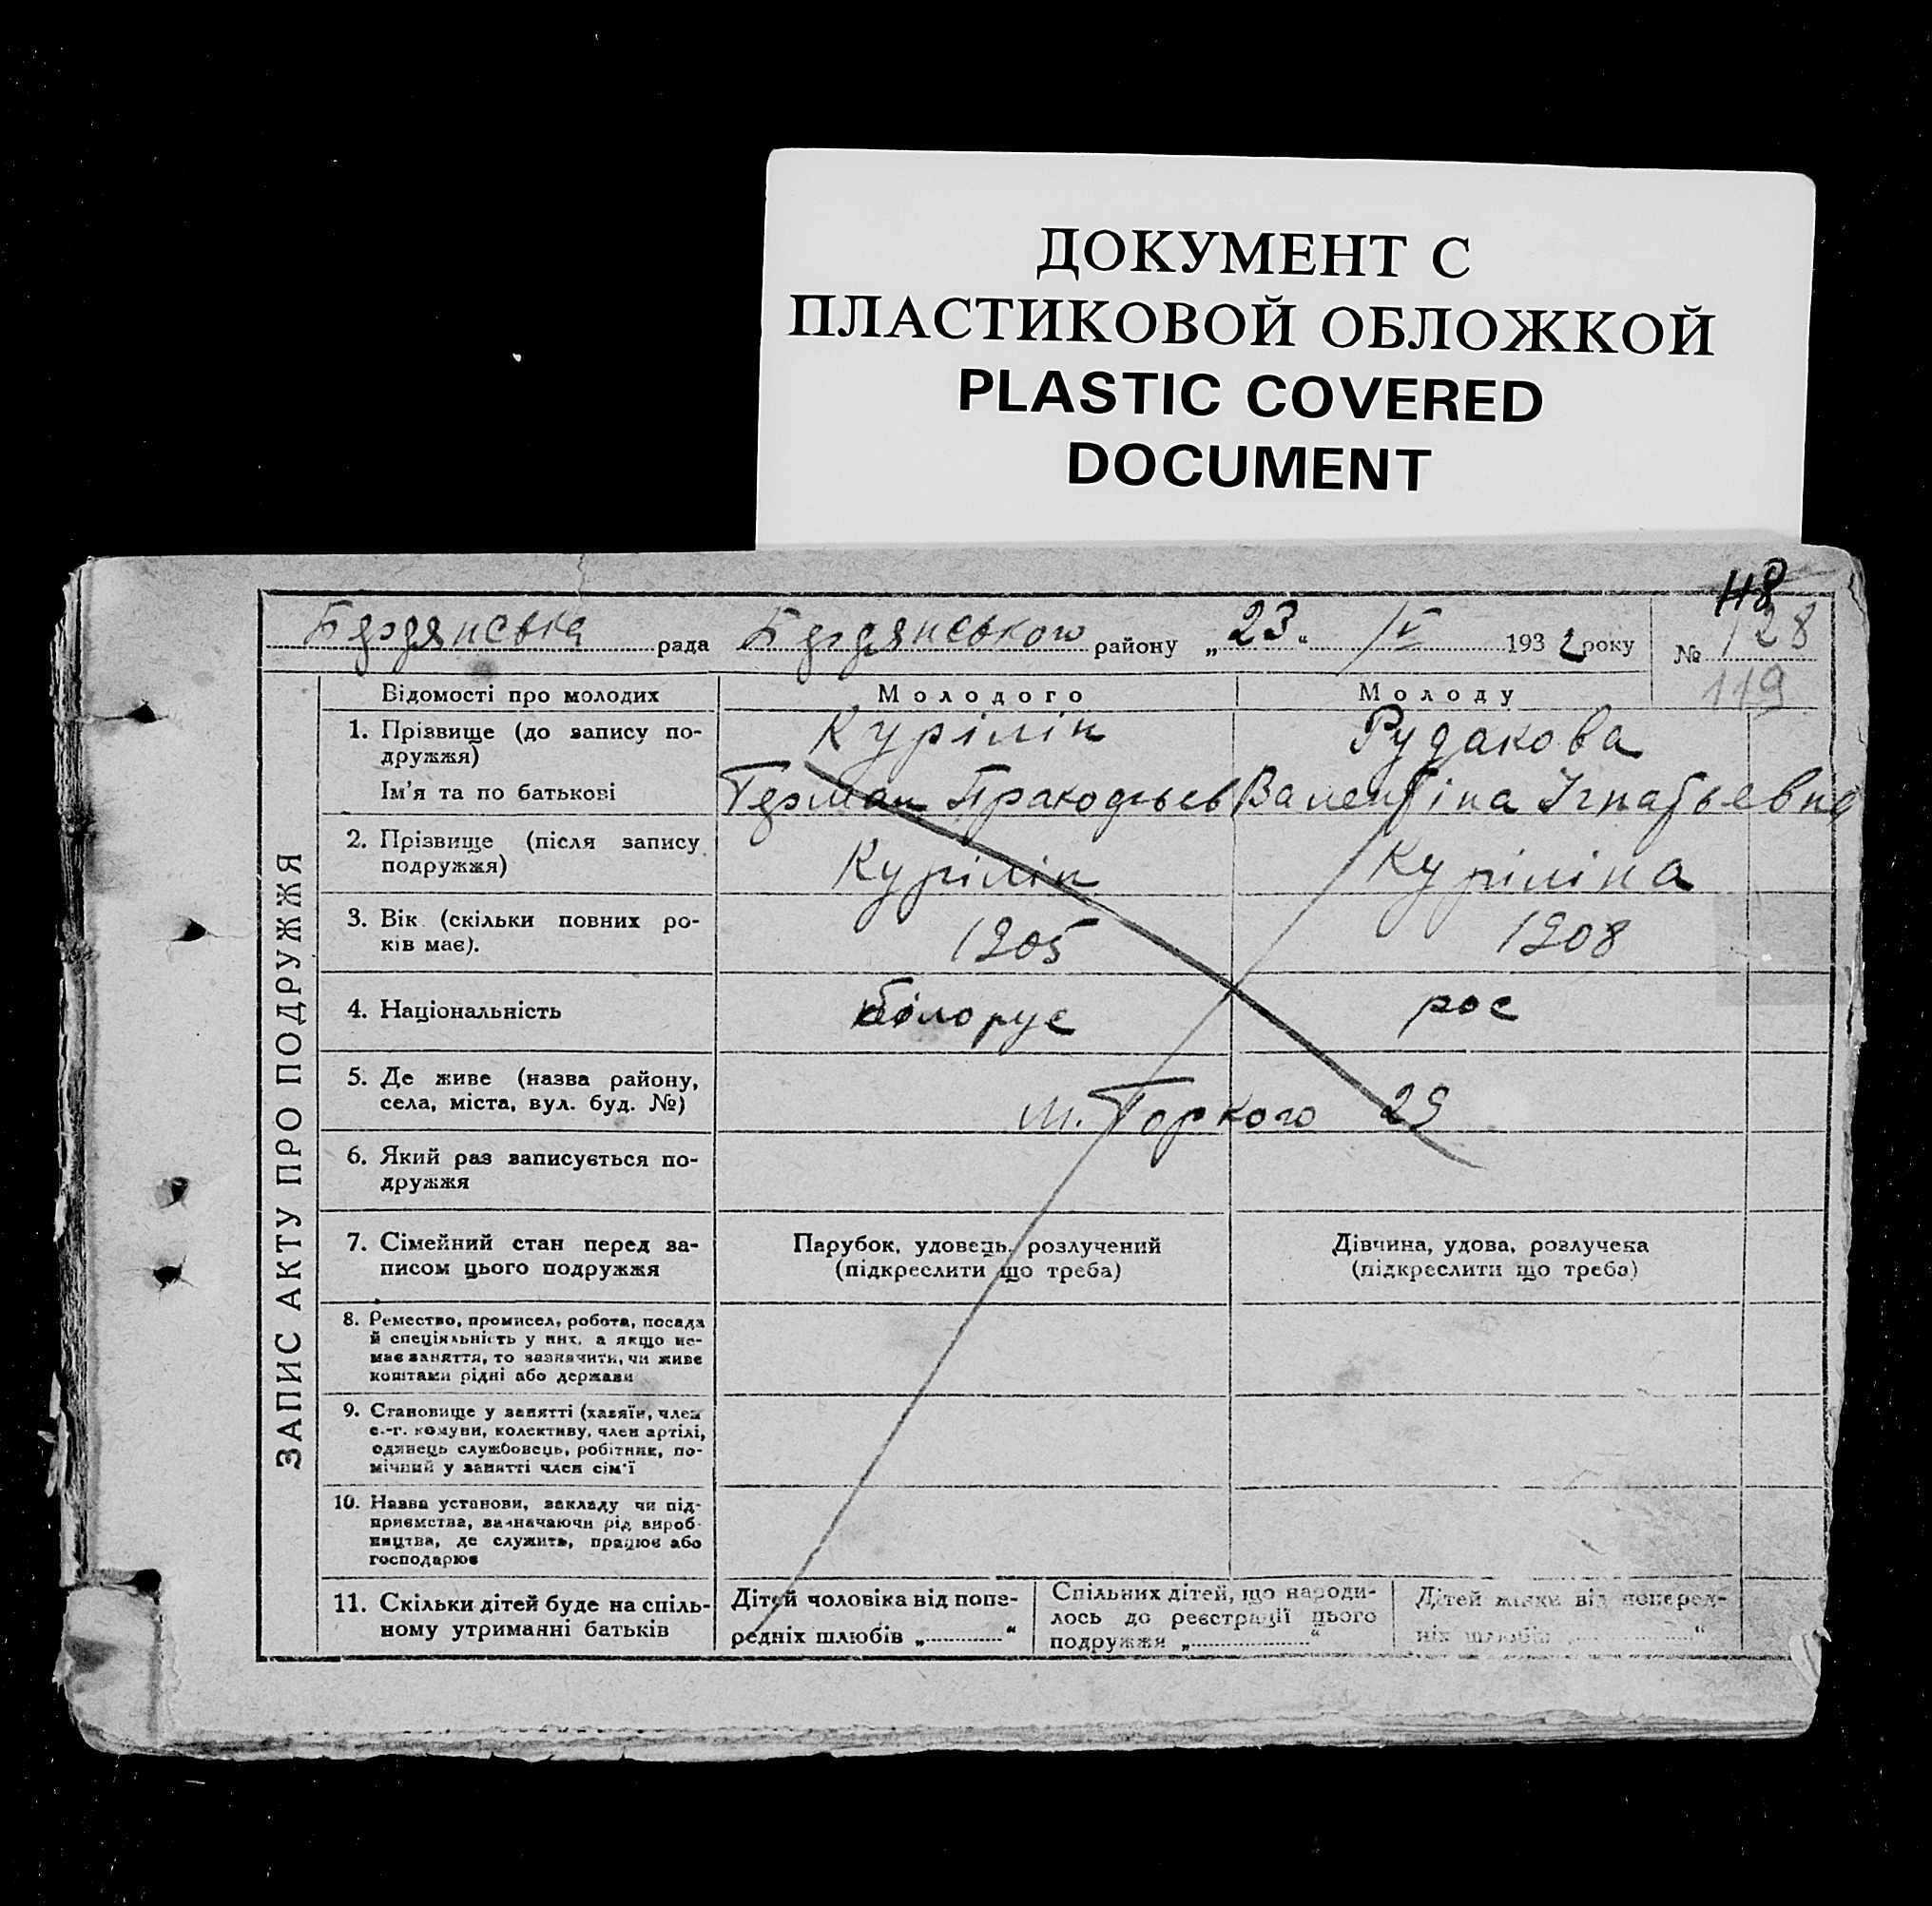 ДОКУМЕНТ С
ПЛАСТИКОВОЙ ОБЛОЖКОЙ
PLASTIC COVERED
DOCUMENT
118
Бердянська рада Бердянського району „23“ IV 1932 року № 128
119
ЗАПИС АКТУ ПРО ПОДРУЖЖЯ
Відомості про молодих Молодого Молоду
1. Прізвище (до запису по-
дружжя) Курілін Рудакова
Ім'я та по батькові Герман Валентіна Ігнатьевна
2. Прізвище (після запису
подружжя) Курілін Куріліна
3. Вік (скільки повних ро-
ків має). 1905 1908
4. Національність білорус рос
5. Де живе (назва району,
села, міста, вул. буд. №) М. Горкого 29
6. Який раз записується по-
дружжя
7. Сімейний стан перед за-
писом цього подружжя
Парубок, удовець, розлучений
(підкреслити що треба)
Дівчина, удова, розлучена
(підкреслити що треба)
8. Ремество, промисел, робота, посада
й спеціяльність у них, а якщо не-
має заняття, то зазначити, чи живе
коштами рідні або держави
9. Становище у занятті (хазяїн, член
с.-г. комуни, колективу, член артілі,
одинець службовець, робітник, по-
мічний у занятті член сім'ї
10. Назва установи, закладу чи під-
приємства, зазначаючи рід вироб-
ництва, де служить, працює або
господарює
11. Скільки дітей буде на спіль-
ному утриманні батьків
Дітей чоловіка від попе-
редніх шлюбів „ “
Спільних дітей, що народи-
лось до реєстрації цього
подружжя „ “
Дітей жінки від поперед-
ніх шлюбів „ “